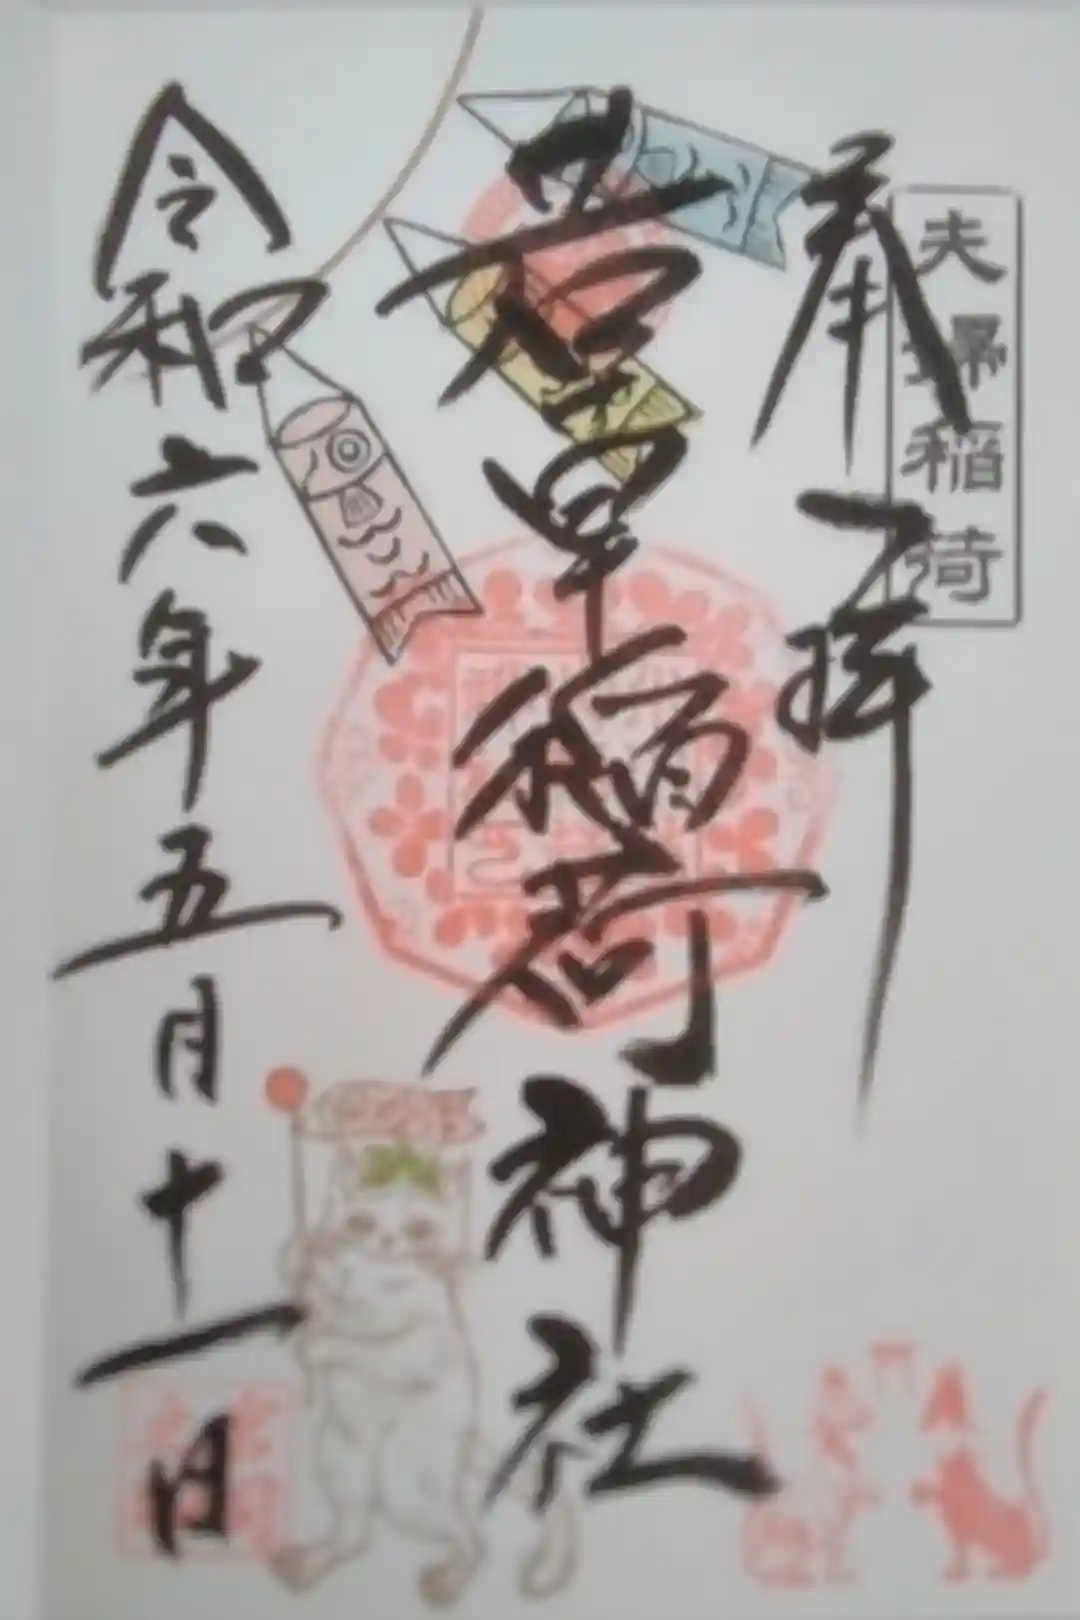 夫婦稲荷
奉拝
稲荷神社
令和六年五月十一日